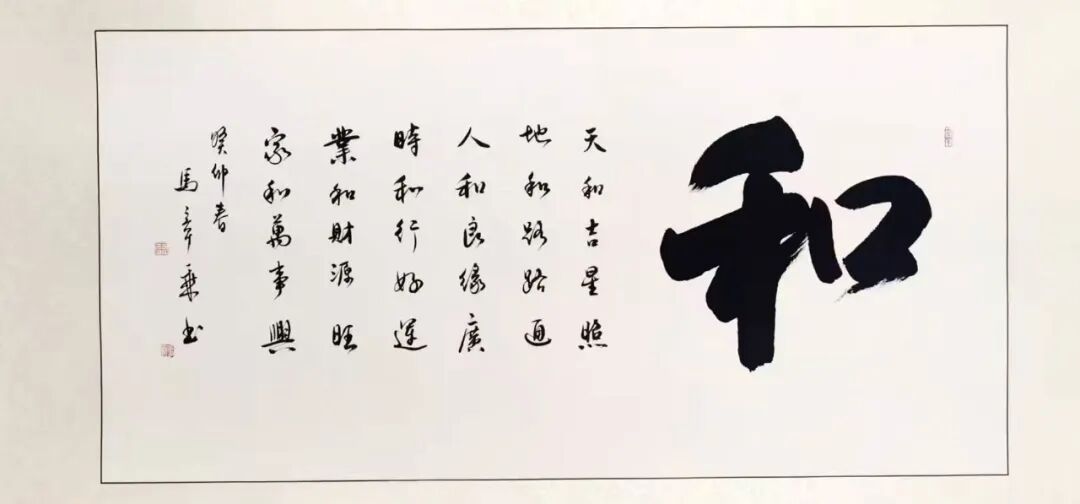 和
天和吉星照
地和路路通
人和良缘廣
時和行好運
業和財源旺
家和萬事興
癸卯春
馬章乘书